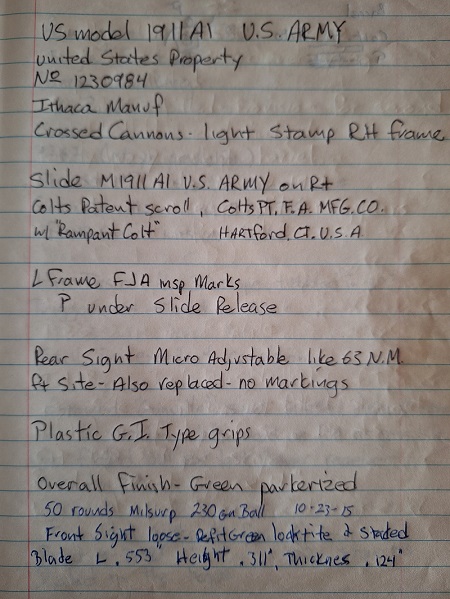 US model 1911 A1 U.S. ARMY
United States Property
No 1230984
Ithaca Manuf
Crossed Cannons - light Stamp RH frame
Slide M1911 A1 U.S. ARMY on Rt
Colts Patent scroll, Colts PT. F.A. MFG. CO.
w/ "Rampant Colt" HARtford, CT. U.S.A
L Frame FJA msp Marks
P under Slide Release
Rear Signt Micro Adjustable like 63 N.M.
Ft Site - Also replaced - no markings
Plastic G.I. Type grips
Overall Finish - Green parkerized
50 rounds Milsurp 230 grn Ball 10-23-15
Front Sight loose - Refit Green locktite & Staked
Blade L .553" Height .311", Thicknes .124"